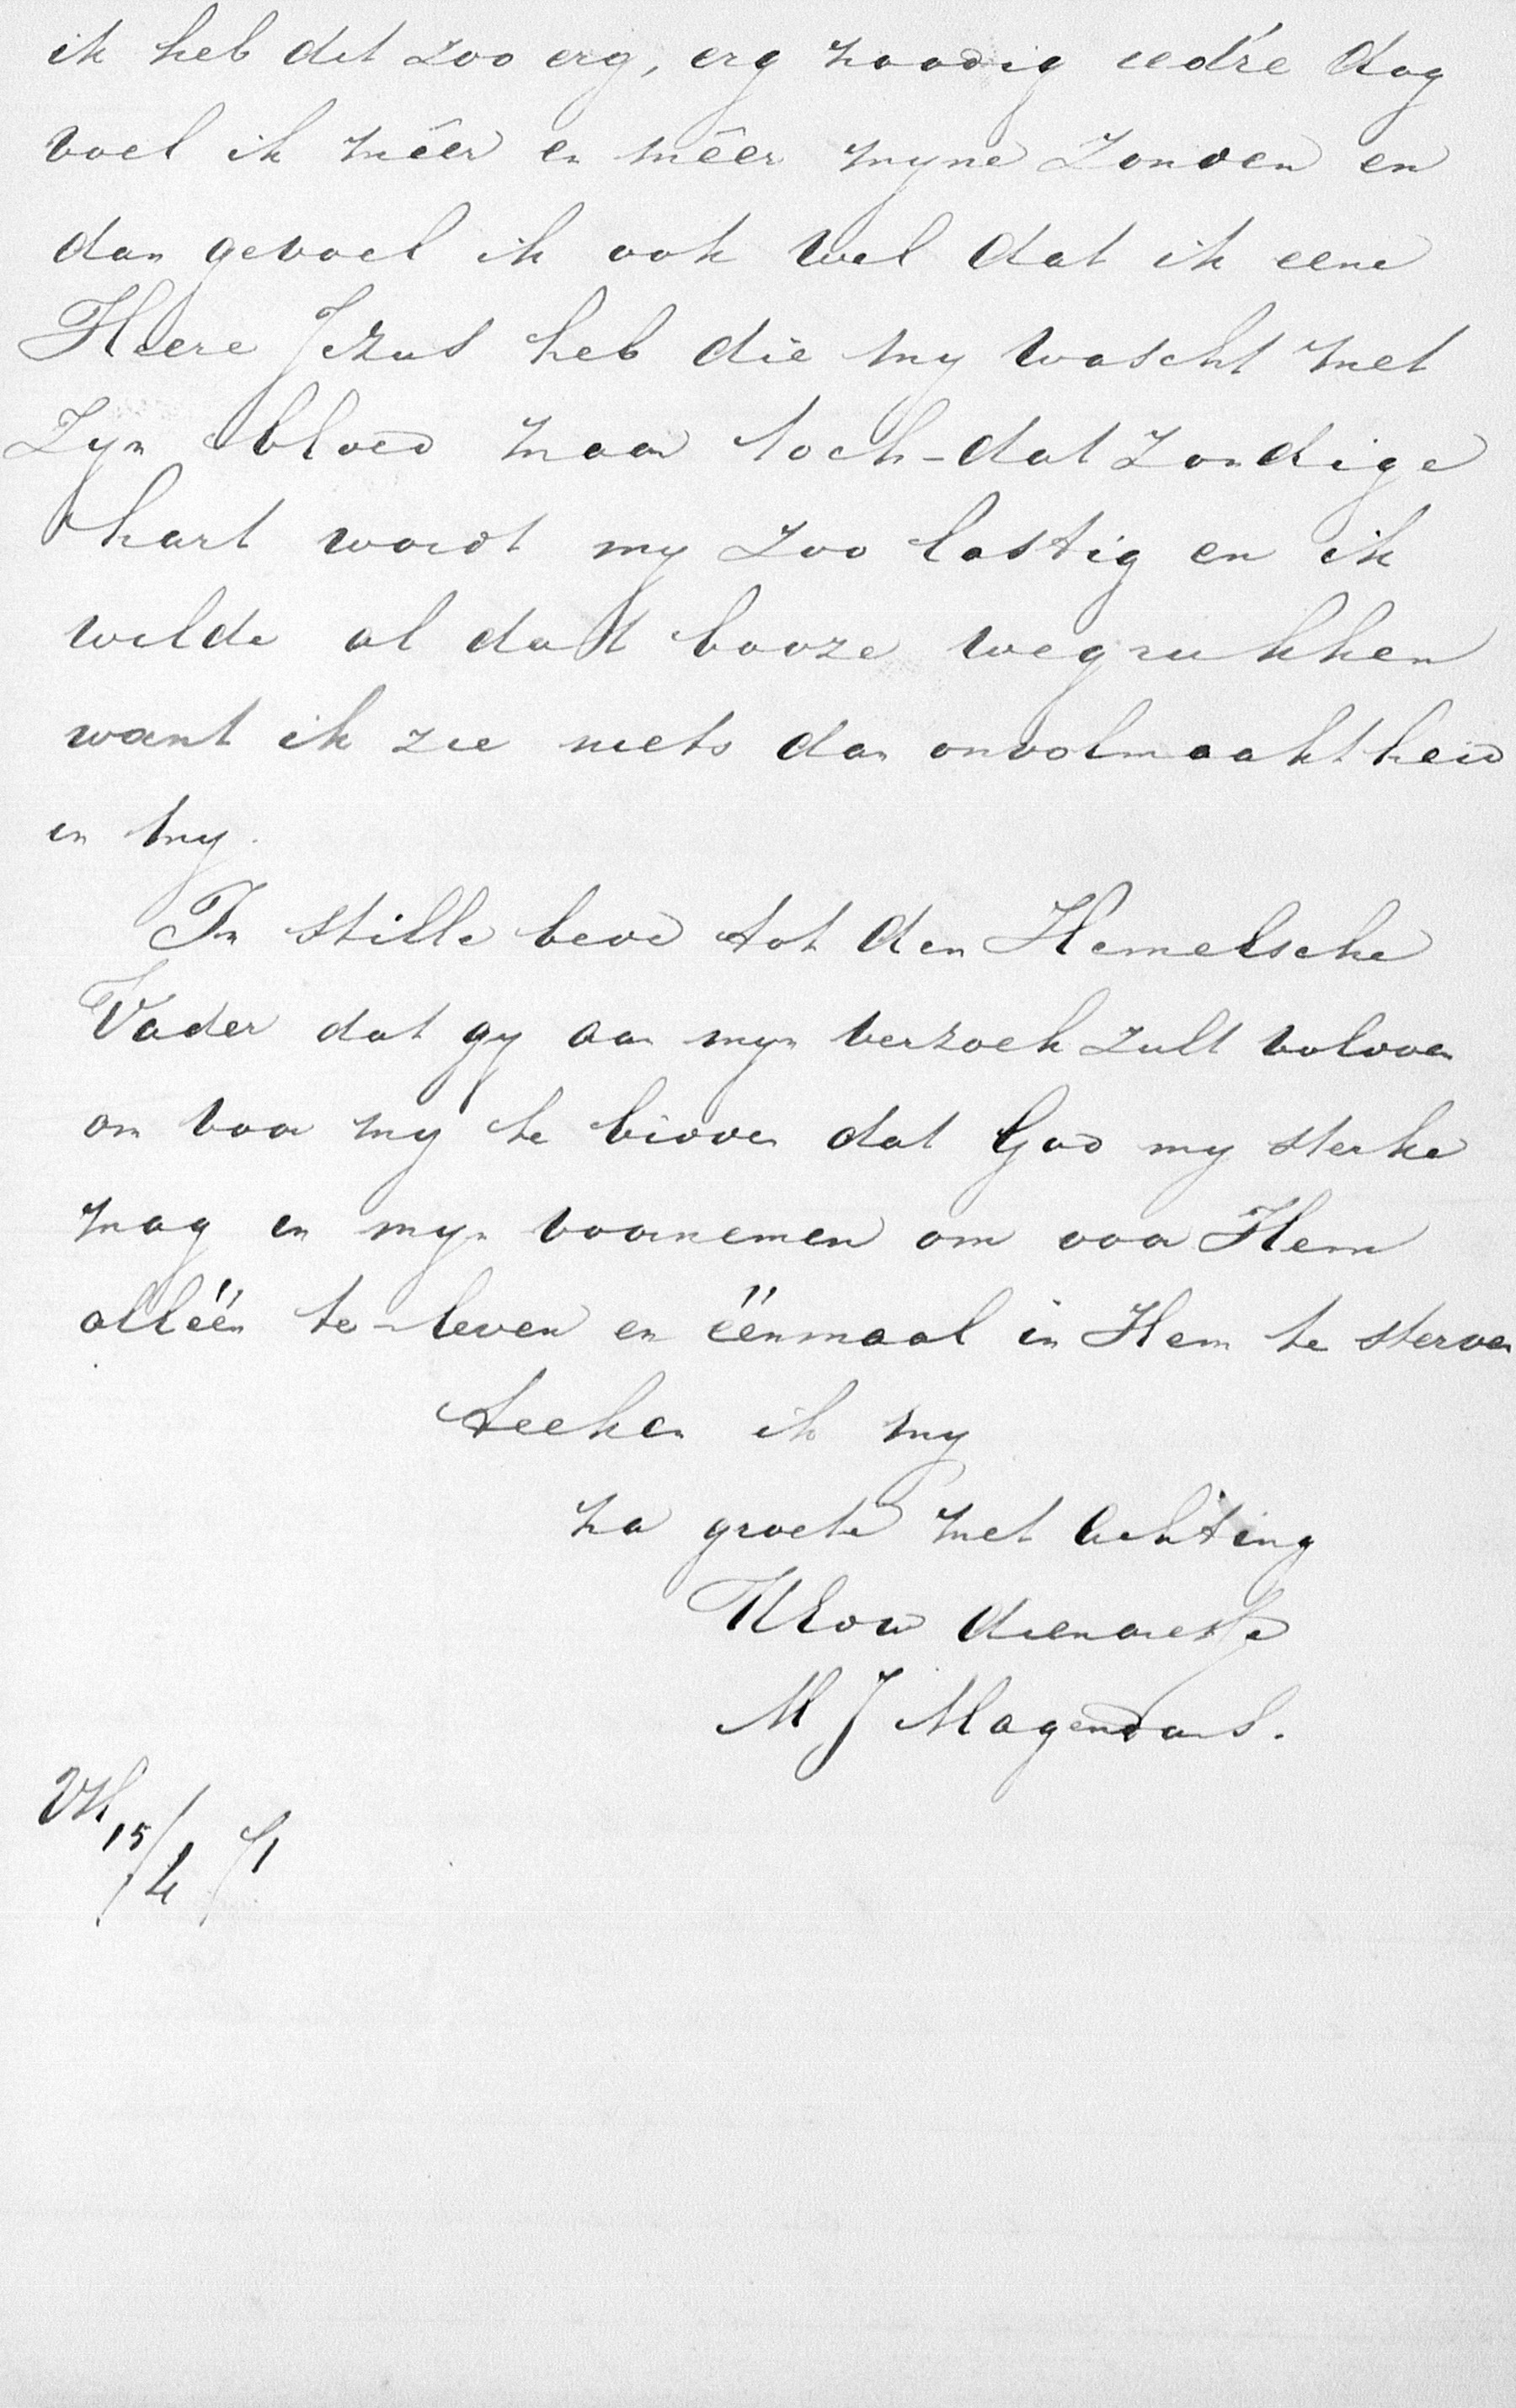 ik heb dit zoo erg, erg noodig ied're dag
voel ik méér en méér myne zonden en
dan gevoel ik ook wel dat ik eene
Heere Jezus heb die my wascht met
Zyn bloed maar toch - dat zondige
hart wordt my zoo lastig en ik
wilde al dat booze wegrukken
want ik zie niets dan onvolmaaktheid
in my.
In stille bede tot den Hemelsche
Vader dat gy aan myn verzoek zult voldoen
om voor my te bidden dat God my sterke
mag in myn voornemen om voor Hem
alléén te leven en éénmaal in Hem te sterven
teeken ik my
na groete met achting
UEow dienaresse
M J Magendans.
VH 15/4 71